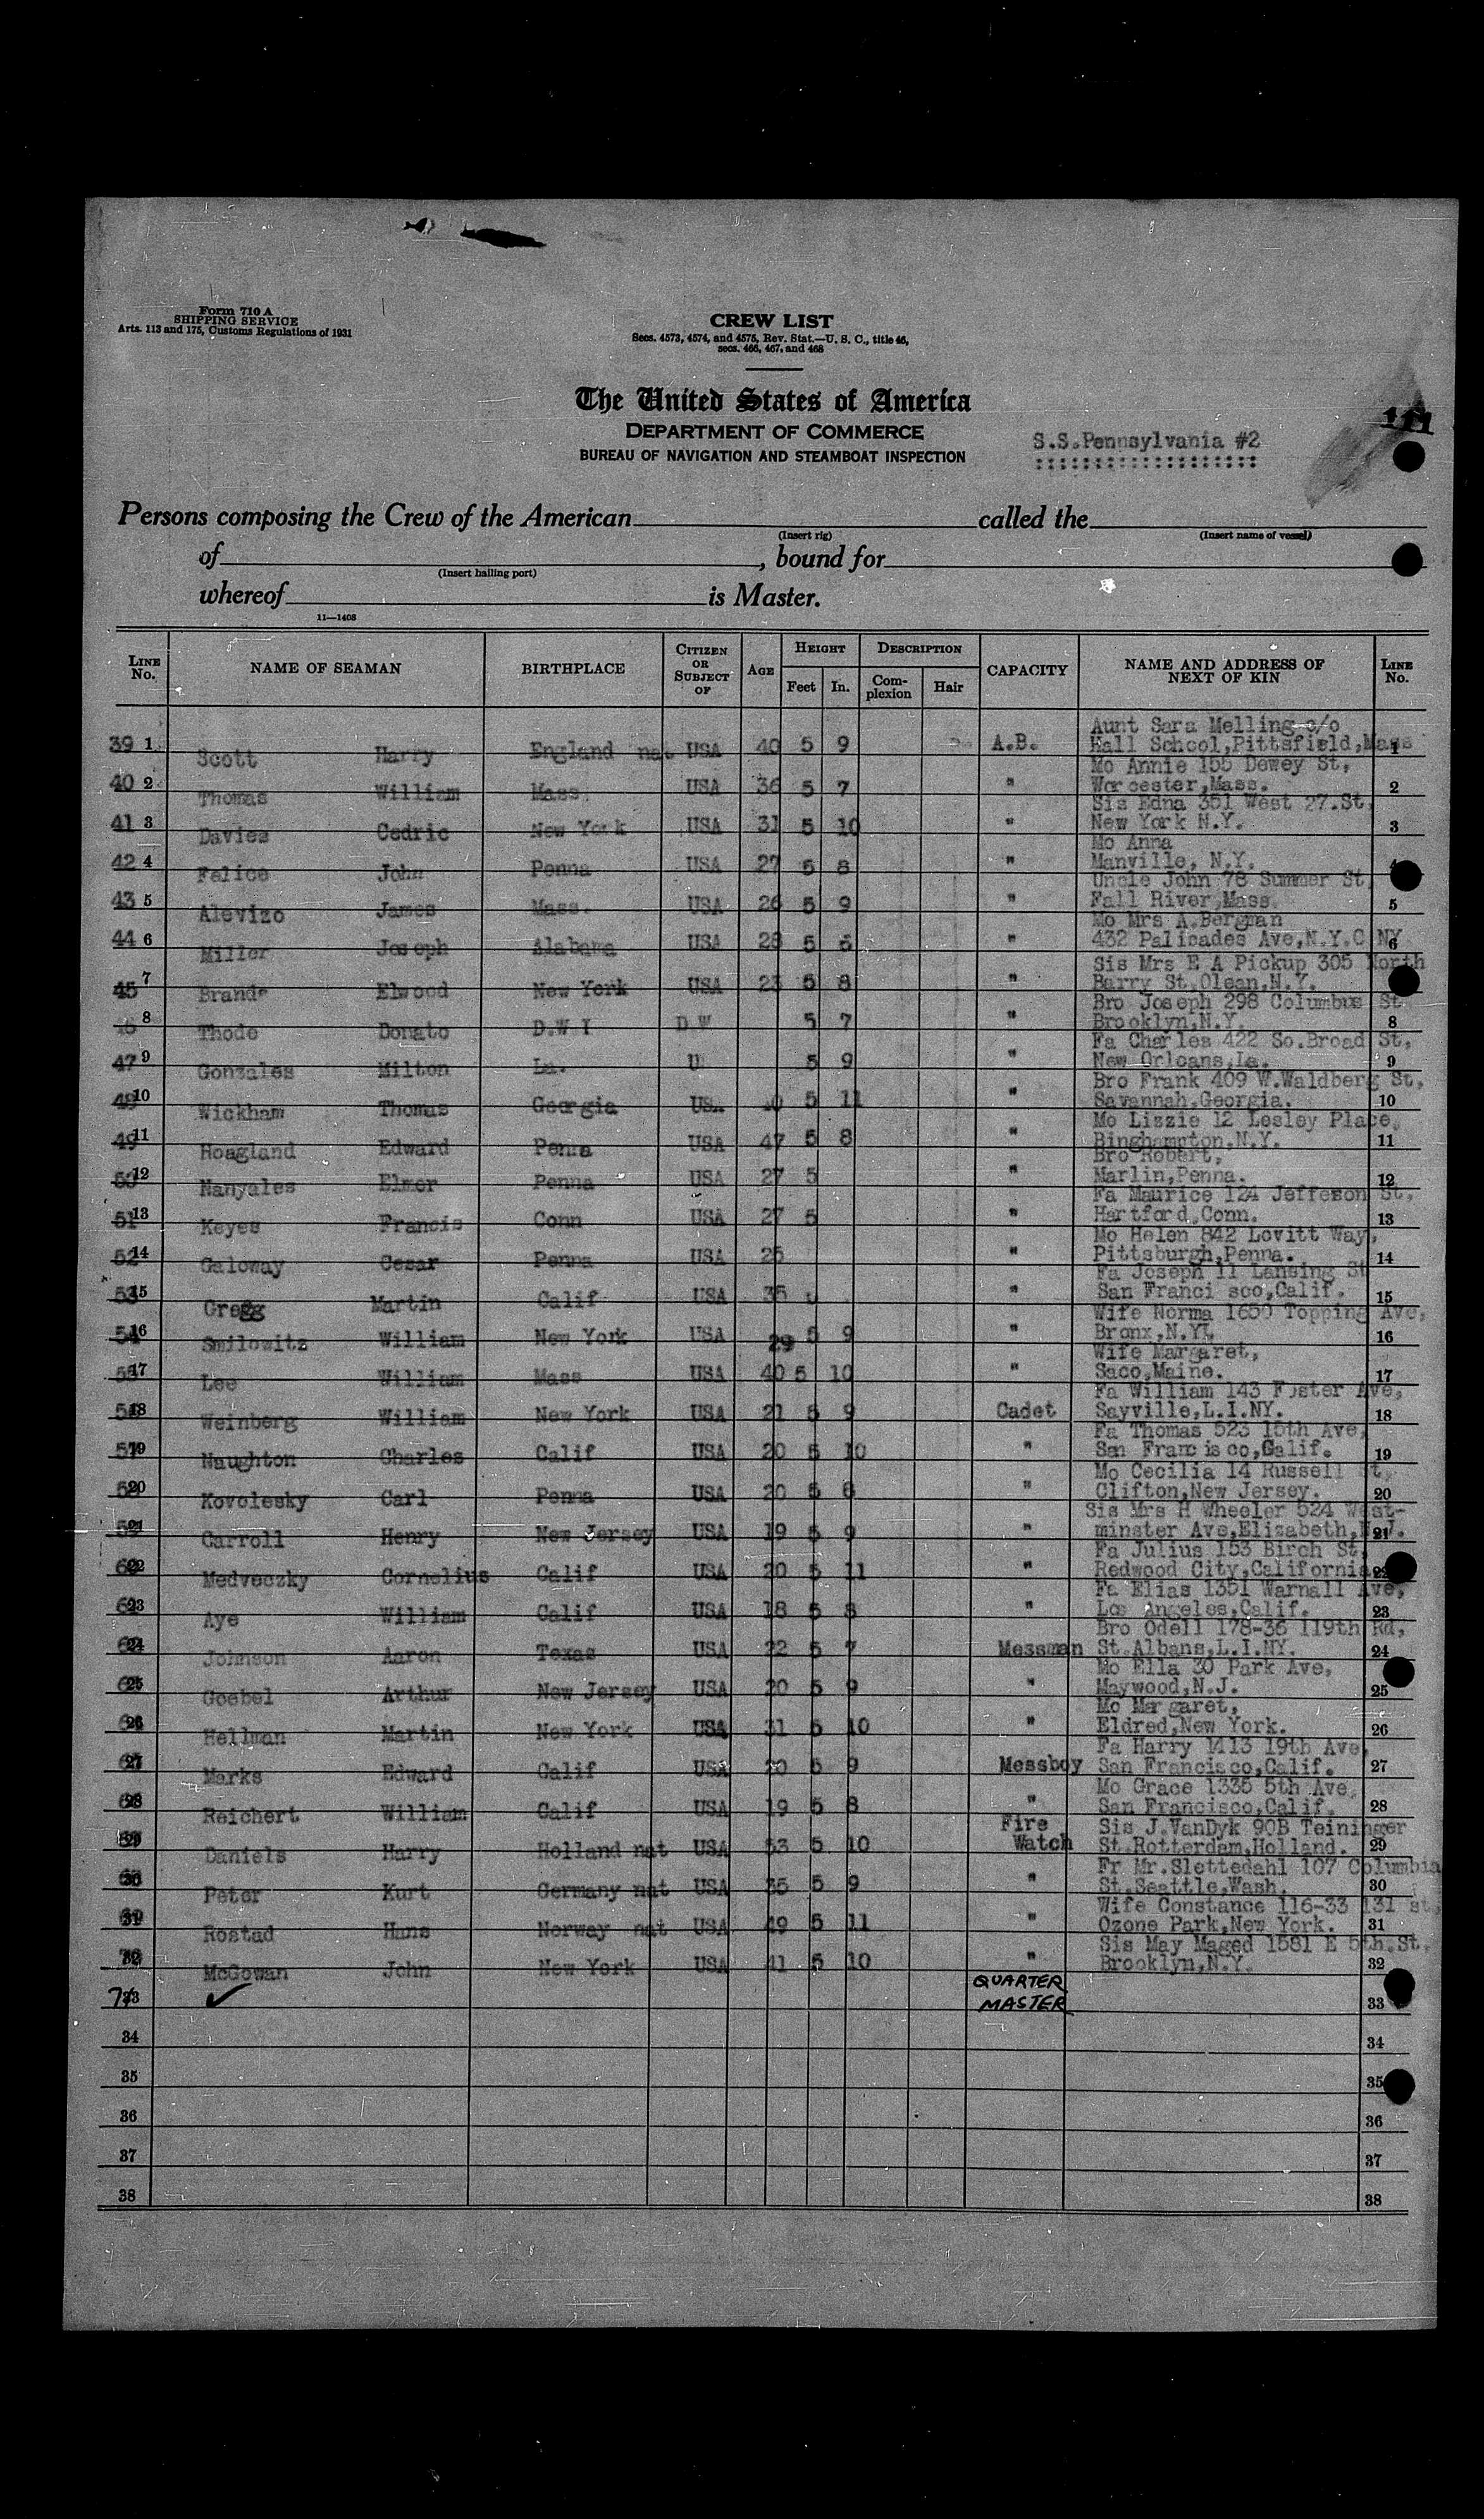 Form 710 A
SHIPPING SERVICE
Arts. 113 and 175, Customs Regulations of 1931
CREW LIST
Secs. 4573, 4574, and 4575, Rev. Stat.—U. S. C., title 46,
secs. 466, 467, and 468
The United States of America
DEPARTMENT OF COMMERCE
BUREAU OF NAVIGATION AND STEAMBOAT INSPECTION
S.S.Pennsylvania #2
111
Persons composing the Crew of the American called the
(Insert rig) (Insert name of vessel)
of , bound for
(Insert hailing port)
whereof is Master.
11—1408
LINE No. NAME OF SEAMAN BIRTHPLACE CITIZEN OR SUBJECT OF AGE HEIGHT Feet In. DESCRIPTION Complexion Hair CAPACITY NAME AND ADDRESS OF NEXT OF KIN LINE No.
Aunt Sara Melling c/o
39 1 Scott Harry England nat USA 40 5 9 A.B. Hall School,Pittsfield,Mass 1
Mo Annie 155 Dewey St,
40 2 Thomas William Mass. USA 36 5 7 " Worcester,Mass. 2
Sis Edna 351 West 27.St,
41 3 Davies Cedric New York USA 31 5 10 " New York N.Y. 3
Mo Anna
42 4 Felice John Penna USA 27 5 8 " Manville, N.Y. 4
Uncle John 78 Summer St,
43 5 Alevizo James Mass. USA 26 5 9 " Fall River,Mass. 5
Mo Mrs A.Bergman
44 6 Miller Joseph Alabama USA 28 5 " 432 Palisades Ave,N.Y.C NY 6
Sis Mrs E A Pickup 305 North
45 7 Brande Elwood New York USA 23 5 8 " Barry St,Olean,N.Y.
Bro Joseph 298 Columbus St.
8 Thode Donato D.W I D W 5 7 " Brooklyn,N.Y. 8
Fa Charles 422 So.Broad St,
47 9 Gonzales Milton La. U 5 9 " New Orleans,La. 9
Bro Frank 409 W.Waldberg St,
48 10 Wickham Thomas Georgia US 0 5 11 " Savannah,Georgia. 10
Mo Lizzie 12 Lesley Place,
49 11 Hoagland Edward Penna USA 47 5 8 " Binghampton,N.Y. 11
Bro Robert,
50 12 Manyales Elmer Penna USA 27 5 " Marlin,Penna. 12
Fa Maurice 124 Jefferson St,
51 13 Keyes Francis Conn USA 27 5 " Hartford,Conn. 13
Mo Helen 842 Lovitt Way,
52 14 Galoway Cesar Penna USA 25 " Pittsburgh,Penna. 14
Fa Joseph 11 Lansing St
53 15 Gregg Martin Calif USA 35 " San Franci sco,Calif. 15
Wife Norma 1650 Topping Ave,
54 16 Smilowitz William New York USA 29 5 9 " Bronx,N.Y. 16
Wife Margaret,
55 17 Lee William Mass USA 40 5 10 " Saco,Maine. 17
Fa William 143 Foster Ave,
56 18 Weinberg William New York USA 21 5 9 Cadet Sayville,L.I.NY. 18
Fa Thomas 523 15th Ave,
57 19 Naughton Charles Calif USA 20 5 10 " San Francisco,Calif. 19
Mo Cecilia 14 Russell St,
58 20 Kovolesky Carl Penna USA 20 5 6 " Clifton,New Jersey. 20
Sis Mrs H Wheeler 524 West-
59 21 Carroll Henry New Jersey USA 19 5 9 " minster Ave,Elizabeth,N.J. 21
Fa Julius 153 Birch St,
60 22 Medveczky Cornelius Calif USA 20 5 11 " Redwood City,California 22
Fa Elias 1351 Warnall Ave,
61 23 Aye William Calif USA 18 5 8 " Los Angeles,Calif. 23
Bro Odell 178-36 119th Rd,
62 24 Johnson Aaron Texas USA 22 5 7 Messman St.Albans,L.I.NY. 24
Mo Ella 30 Park Ave,
63 25 Goebel Arthur New Jersey USA 20 5 9 " Maywood,N.J. 25
Mo Margaret,
64 26 Hellman Martin New York USA 31 5 10 " Eldred,New York. 26
Fa Harry 1413 19th Ave,
65 27 Marks Edward Calif USA 20 5 9 Messboy San Francisco,Calif. 27
Mo Grace 1335 5th Ave,
66 28 Reichert William Calif USA 19 5 8 " San Francisco,Calif. 28
Fire Sis J.VanDyk 90B Teininger
67 29 Daniels Harry Holland nat USA 53 5 10 Watch St.Rotterdam,Holland. 29
Fr Mr.Slettedahl 107 Columbia
68 30 Peter Kurt Germany nat USA 35 5 9 " St.Seattle,Wash. 30
Wife Constance 116-33 131 st,
69 31 Rostad Hans Norway nat USA 49 5 11 " Ozone Park,New York. 31
Sis May Maged 1581 E 5th.St,
70 32 McGowan John New York USA 41 5 10 " Brooklyn,N.Y. 32
71 33 ✓ QUARTER MASTER 33
34 34
35 35
36 36
37 37
38 38